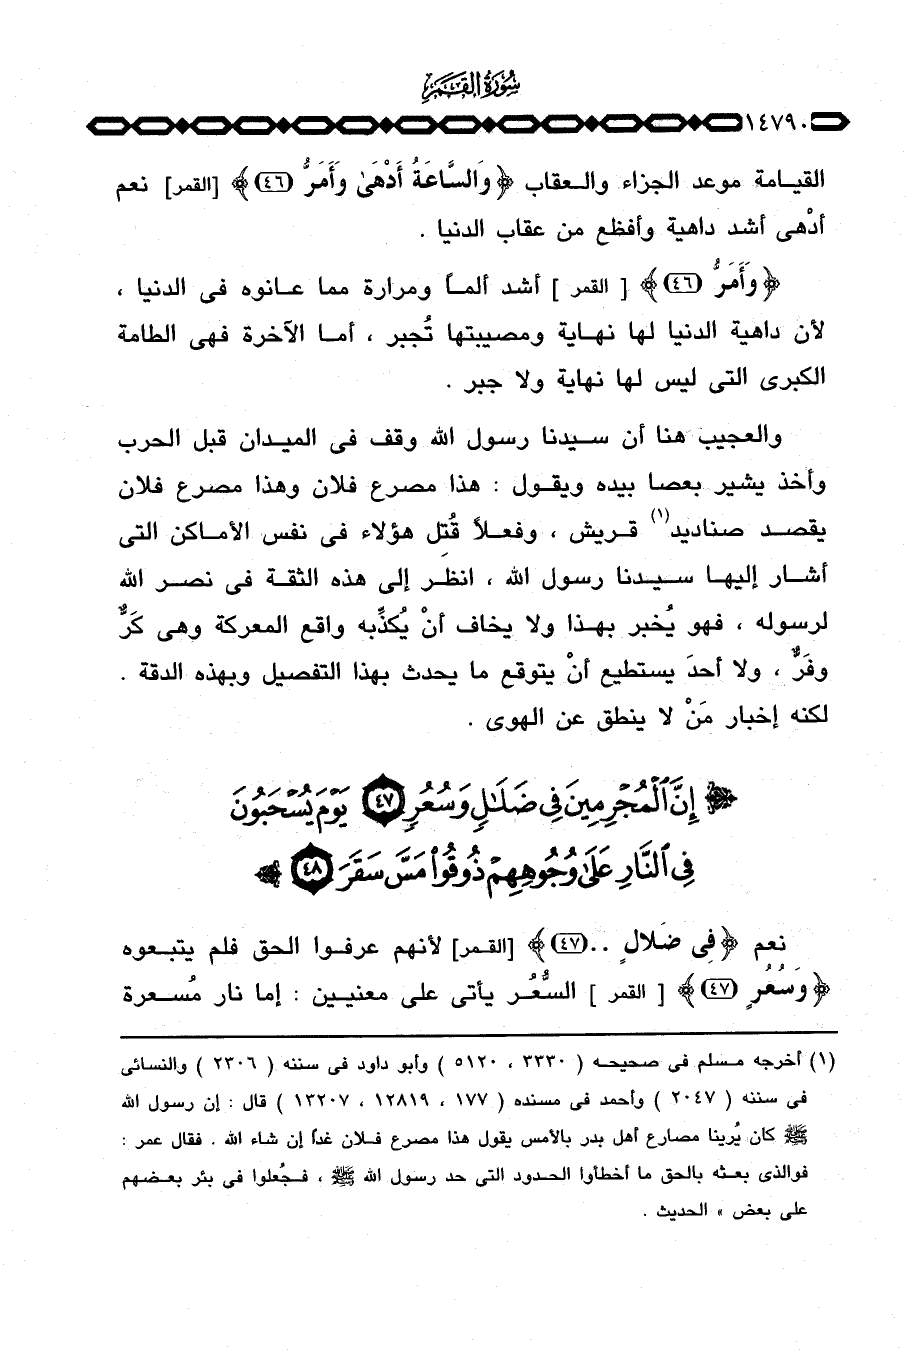 سُورَةُ القَمَرِ
١٤٧٩٠
القيامة موعد الجزاء والعقاب ﴿ وَالسَّاعَةُ أَدْهَىٰ وَأَمَرُّ (٤٦) ﴾ [القمر] نعم
أدْهى أشد داهية وأفظع من عقاب الدنيا .
﴿ وَأَمَرُّ (٤٦) ﴾ [ القمر ] أشد ألماً ومرارة مما عانوه فى الدنيا ،
لأن داهية الدنيا لها نهاية ومصيبتها تُجبر ، أما الآخرة فهى الطامة
الكبرى التى ليس لها نهاية ولا جبر .
والعجيب هنا أن سيدنا رسول الله وقف فى الميدان قبل الحرب
وأخذ يشير بعصا بيده ويقول : هذا مصرع فلان وهذا مصرع فلان
يقصد صناديد(١) قريش ، وفعلاً قُتل هؤلاء فى نفس الأماكن التى
أشار إليها سيدنا رسول الله ، انظر إلى هذه الثقة فى نصر الله
لرسوله ، فهو يُخبر بهذا ولا يخاف أنْ يُكذِّبه واقع المعركة وهى كَرٌّ
وفَرٌّ ، ولا أحدَ يستطيع أنْ يتوقع ما يحدث بهذا التفصيل وبهذه الدقة .
لكنه إخبار مَنْ لا ينطق عن الهوى .
﴿ إِنَّ ٱلْمُجْرِمِينَ فِى ضَلَٰلٍ وَسُعُرٍ ٤٧ يَوْمَ يُسْحَبُونَ
فِى ٱلنَّارِ عَلَىٰ وُجُوهِهِمْ ذُوقُوا۟ مَسَّ سَقَرَ ٤٨ ﴾
نعم ﴿ فِى ضَلالٍ .. (٤٧) ﴾ [القمر] لأنهم عرفوا الحق فلم يتبعوه
﴿ وَسُعُرٍ (٤٧) ﴾ [ القمر ] السُّعُر يأتى على معنيين : إما نار مُسعرة
(١) أخرجه مسلم فى صحيحه ( ٣٣٣٠ ، ٥١٢٠ ) وأبو داود فى سننه ( ٢٣٠٦ ) والنسائى
فى سننه ( ٢٠٤٧ ) وأحمد فى مسنده ( ١٧٧ ، ١٢٨١٩ ، ١٣٢٠٧ ) قال : إن رسول الله
ﷺ كان يُرينا مصارع أهل بدر بالأمس يقول هذا مصرع فلان غداً إن شاء الله . فقال عمر :
فوالذى بعثه بالحق ما أخطأوا الحدود التى حد رسول الله ﷺ ، فجُعلوا فى بئر بعضهم
على بعض » الحديث .